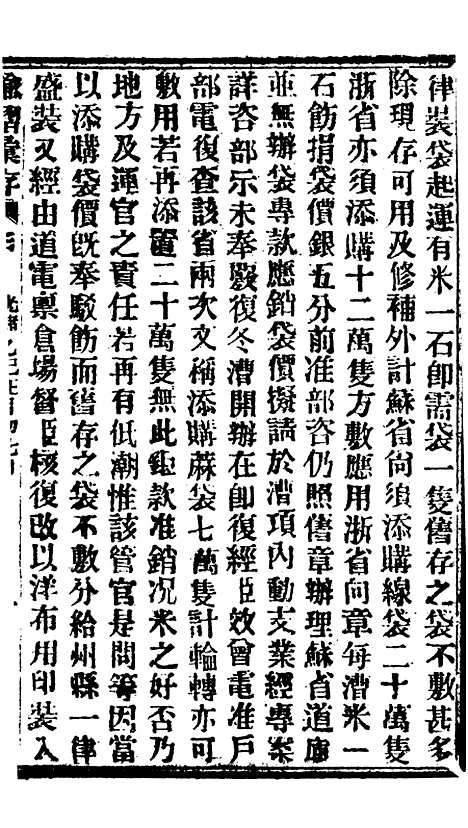 律裝袋起運有米一石卽需袋一隻舊存之袋不敷甚多
除現存可用及修補外計蘇省尙須添購線袋二十萬隻
浙省亦須添購十二萬隻方敷應用浙省向章每漕米一
石飭捐袋價銀五分前准部咨仍照舊章辦理蘇省道庫
並無辦袋專款應銷袋價擬請於漕項內動支業經專案
詳咨部示未奉覆復冬漕開辦在卽復經臣效曾電准戶
部電復查該省兩次文稱添購蔴袋七萬隻計輪轉亦可
敷用若再添置二十萬隻無此鉅款准銷况米之好否乃
地方及運官之責任若再有低潮惟該管官是問等因當
以添購袋價旣奉駁飭而舊存之袋不敷分給州縣一律
盛裝又經由道電禀倉場督臣核復改以洋布用印裝入
諭摺彙存 光緒 乙巳 月初七日